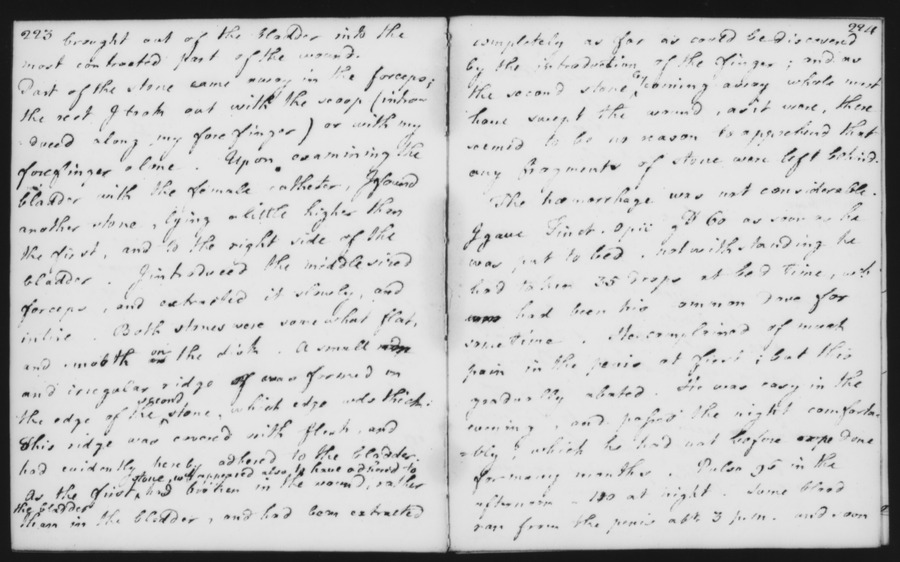 223 brought out of the bladder into the
most contracted part of the wound.
Part of the stone came away in the forceps;
the rest I took out with the scoop (intro-
duced along my forefinger) or with my
forefinger alone. Upon examining the
bladder with the female catheter, I found
another stone, lying a little higher than
the first, and to the right side of the
bladder. I introduced the middle sized
forceps, and extracted it slowly, and
intire. Both stones were somewhat flat,
and smooth on the disk. A small
and irregular ridge was formed on
the edge of the second stone, which edge was thick.
This ridge was covered with flesh, and
had evidently hereby adhered to the bladder.
stone, wch appeared also to have adhered to
As the first, had broken in the wound, rather
the bladder
than in the bladder, and had been extracted
224
completely as far as could be discovered
by the introduction of the finger; and as
the second stone by coming away whole must
have swept the wound, as it were, there
seemed to be no reason to apprehend that
any fragments of stone were left behind.
The hæmorrhage was not considerable.
I gave Tinct. Opii gtt 60 as soon as he
was put to bed, notwithstanding he
had taken 35 drops at bed time, wch
had been his common dose for
some time. He complained of much
pain in the penis at first; but this
gradually abated. He was easy in the
evening, and passed the night comforta-
bly; which he had not before done
for many months. Pulse 95 in the
afternoon - 100 at night. Some blood
ran from the penis abt 3 p.m. and soon